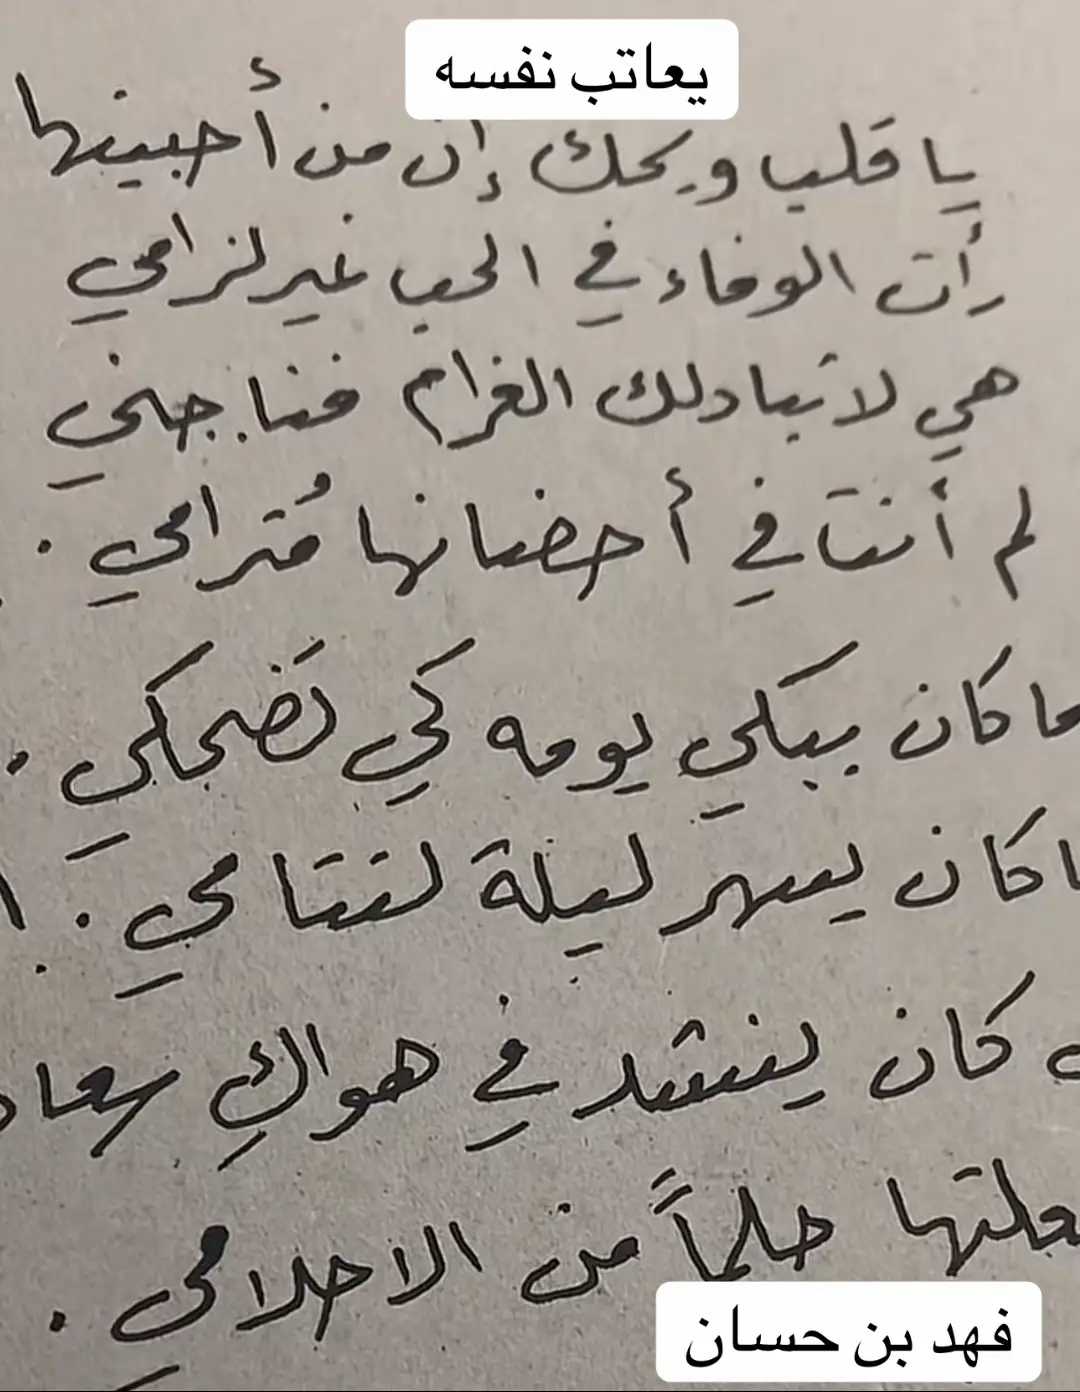 يعاتب نفسه
يا قلب ويحك إن من أحببتها
رأت الوفاء في الحب غير لزامي
هي لا تبادلك الغرام فناجني
لم أنت في أحضانها مُترامي .
ما كان يبكي يومه كي تَضحكي .
ما كان يسهر ليلة لتنامي .
كان ينشد في هواكِ سعاد
حلماً من الاحلامي .
فهد بن حسان